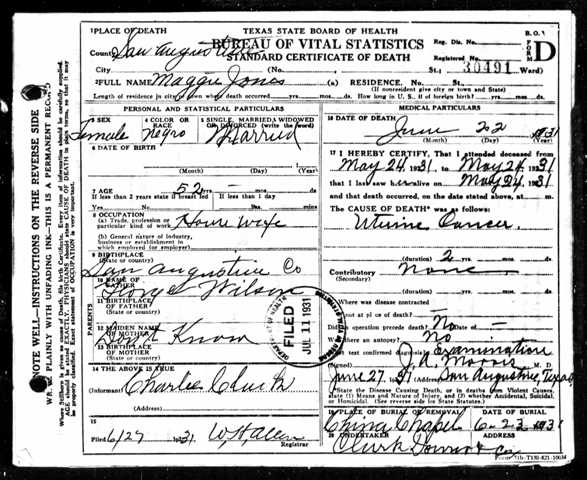 TEXAS STATE BOARD OF HEALTH
BUREAU OF VITAL STATISTICS
STANDARD CERTIFICATE OF DEATH
B. O. V.
FORM D
1 PLACE OF DEATH
County San Augustine
Reg. Dis. No.
Registered No. 30491
City (No. St., Ward)
2 FULL NAME Maggie Jones (a) RESIDENCE. No. St.
(If nonresident give city or town and State)
Length of residence in city or town where death occurred yrs. mos. ds. How long in U. S. if of foreign birth? yrs. mos. ds.
PERSONAL AND STATISTICAL PARTICULARS
3 SEX 4 COLOR OR RACE 5 SINGLE, MARRIED, WIDOWED OR DIVORCED (write the word)
Female Negro Married
6 DATE OF BIRTH
(Month) (Day) (Year)
7 AGE 52
If less than 2 years state if breast fed If less than 1 day
Yes No yrs. mos. ds. hrs. min.
8 OCCUPATION
(a) Trade, profession or particular kind of work House wife
(b) General nature of industry, business or establishment in which employed (or employer)
9 BIRTHPLACE
(State or country) San Augustine Co
10 NAME OF FATHER George Wilson
11 BIRTHPLACE OF FATHER
(State or country)
12 MAIDEN NAME OF MOTHER Dont Know
13 BIRTHPLACE OF MOTHER
(State or country)
PARENTS
14 THE ABOVE IS TRUE
(Informant) Charlie Clark
(Address)
15
Filed 6/27 31 W. H. Allen
Registrar
MEDICAL PARTICULARS
16 DATE OF DEATH
June 22 1931
(Month) (Day) (Year)
17 I HEREBY CERTIFY, That I attended deceased from
May 24, 1931, to May 24, 1931
that I last saw her alive on May 24, 1931
and that death occurred, on the date stated above, at m.
The CAUSE OF DEATH* was as follows:
Uterine Cancer
(duration) 2 yrs. mos. ds.
Contributory None
(Secondary)
(duration) yrs. mos. ds.
Where was disease contracted
if not at place of death?
Did operation precede death? No Date of —
Was there an autopsy? No
What test confirmed diagnosis? Examination
(Signed) M. D.
June 27, 31 San Augustine, Texas
State the Disease Causing Death, or in deaths from Violent Causes, state (1) Means and Nature of Injury, and (2) whether Accidental, Suicidal, or Homicidal. (See reverse side for State Statutes.)
19 PLACE OF BURIAL OR REMOVAL DATE OF BURIAL
China Chapel 6-23 1931
20 UNDERTAKER ADDRESS
FILED
JUL 11 1931
NOTE WELL—INSTRUCTIONS ON THE REVERSE SIDE
PLAINLY WITH UNFADING INK—THIS IS A PERMANENT RECORD